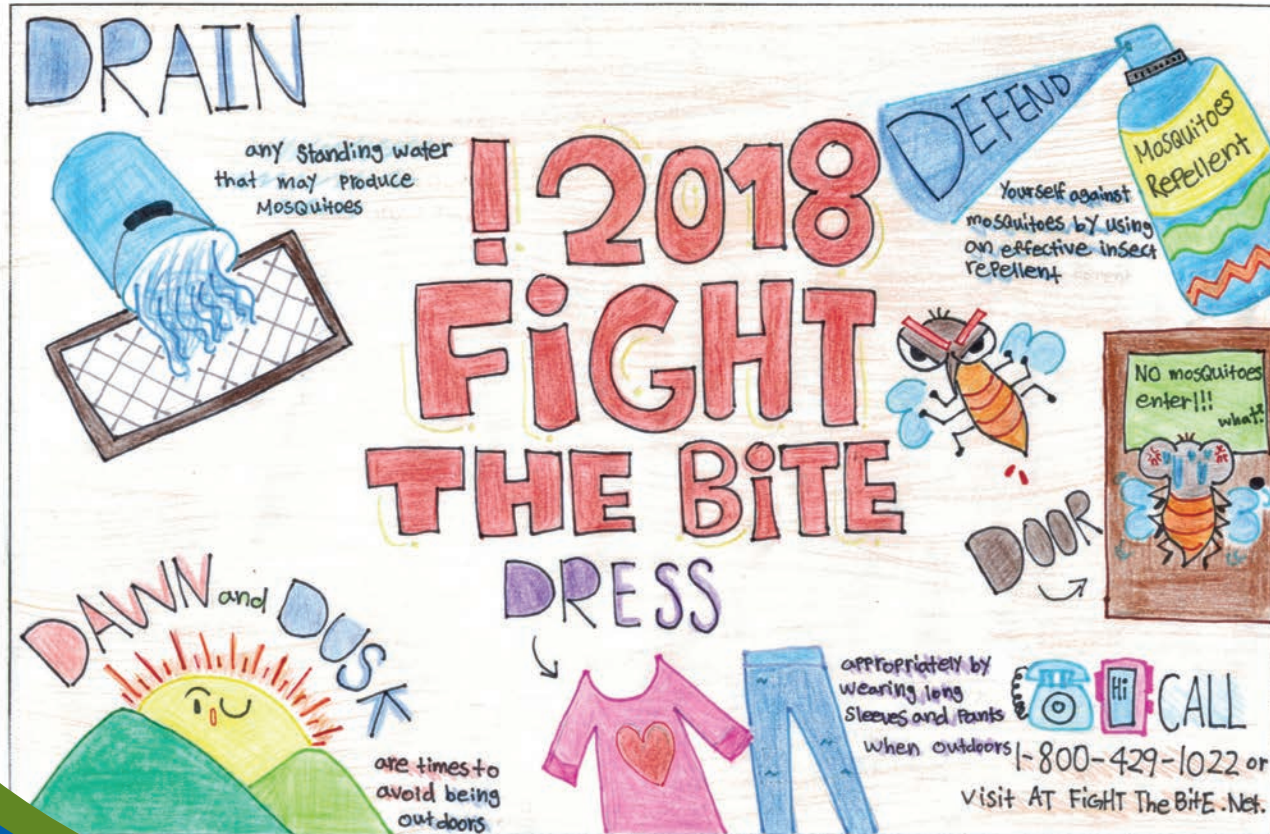 DRAIN
any standing water
that may produce
MosQuitoes
! 2018
FiGHT
THE BiTE
DEFEND
Mosquitoes
Repellent
Yourself against
mosquitoes by using
an effective insect
repellent
NO mosQuitoes
enter!!!
what?
DOOR
DAWN and DUSK
are times to
avoid being
outdoors
DRESS
appropriately by
wearing long
Sleeves and Pants
when outdoors
Hi
CALL
1-800-429-1022 or
visit AT FiGHT The BitE.Net.